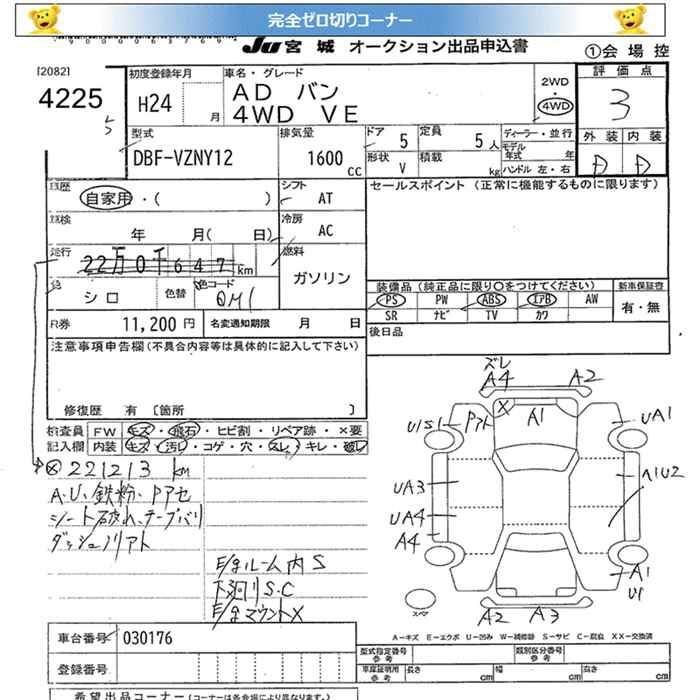 完全ゼロ切りコーナー
JU 宮城 オークション出品申込書
①会場控
[2082]
4225
初度登録年月
H24 月
車名・グレード
AD バン
4WD VE
2WD
4WD
評価点
3
外装 内装
D D
型式
DBF-VZNY12
排気量
1600 CC
ドア 5
定員 5人
形状 V
積載 kg
ディーラー・並行
モデル年式 年
ハンドル 左・右
自家用・( )
シフト AT
セールスポイント (正常に機能するものに限ります)
年 月( 日)
冷房 AC
22万0千647km
燃料
ガソリン
シロ
色替
色コード QM1
装備品 (純正品に限り○をつけてください)
新車保証書
PS PW ABS エアB AW
有・無
SR ナビ TV カワ
R券 11,200円
名変通知期限 月 日
後日品
注意事項申告欄(不具合内容等は具体的に記入して下さい)
修復歴 有 [箇所
検査員 FW キズ・飛石・ヒビ割・リペア跡・×要
記入欄 内装 キズ・汚れ・コゲ・穴・スレ・キレ・破レ
221213 km
A.U.鉄粉.Pアセ
シート破れ、テープバリ
ダッシュノリアト
E/gルーム内 S
下廻りS.C
E/gマウントX
ズレ
A4 A2
U1S1 Pアト X A1 UA1
UA3
UA4
A4
A1
U1
スペア
A2 A3
A－キズ E－エクボ U－凹み W－補修跡 S－サビ C－腐食 XX－交換済
車台番号 030176
型式指定番号 参考
類別区分番号 参考
登録番号
車庫証明用 参考
長さ 幅 高さ
希望出品コーナー(コーナーは各会場により異なります。)